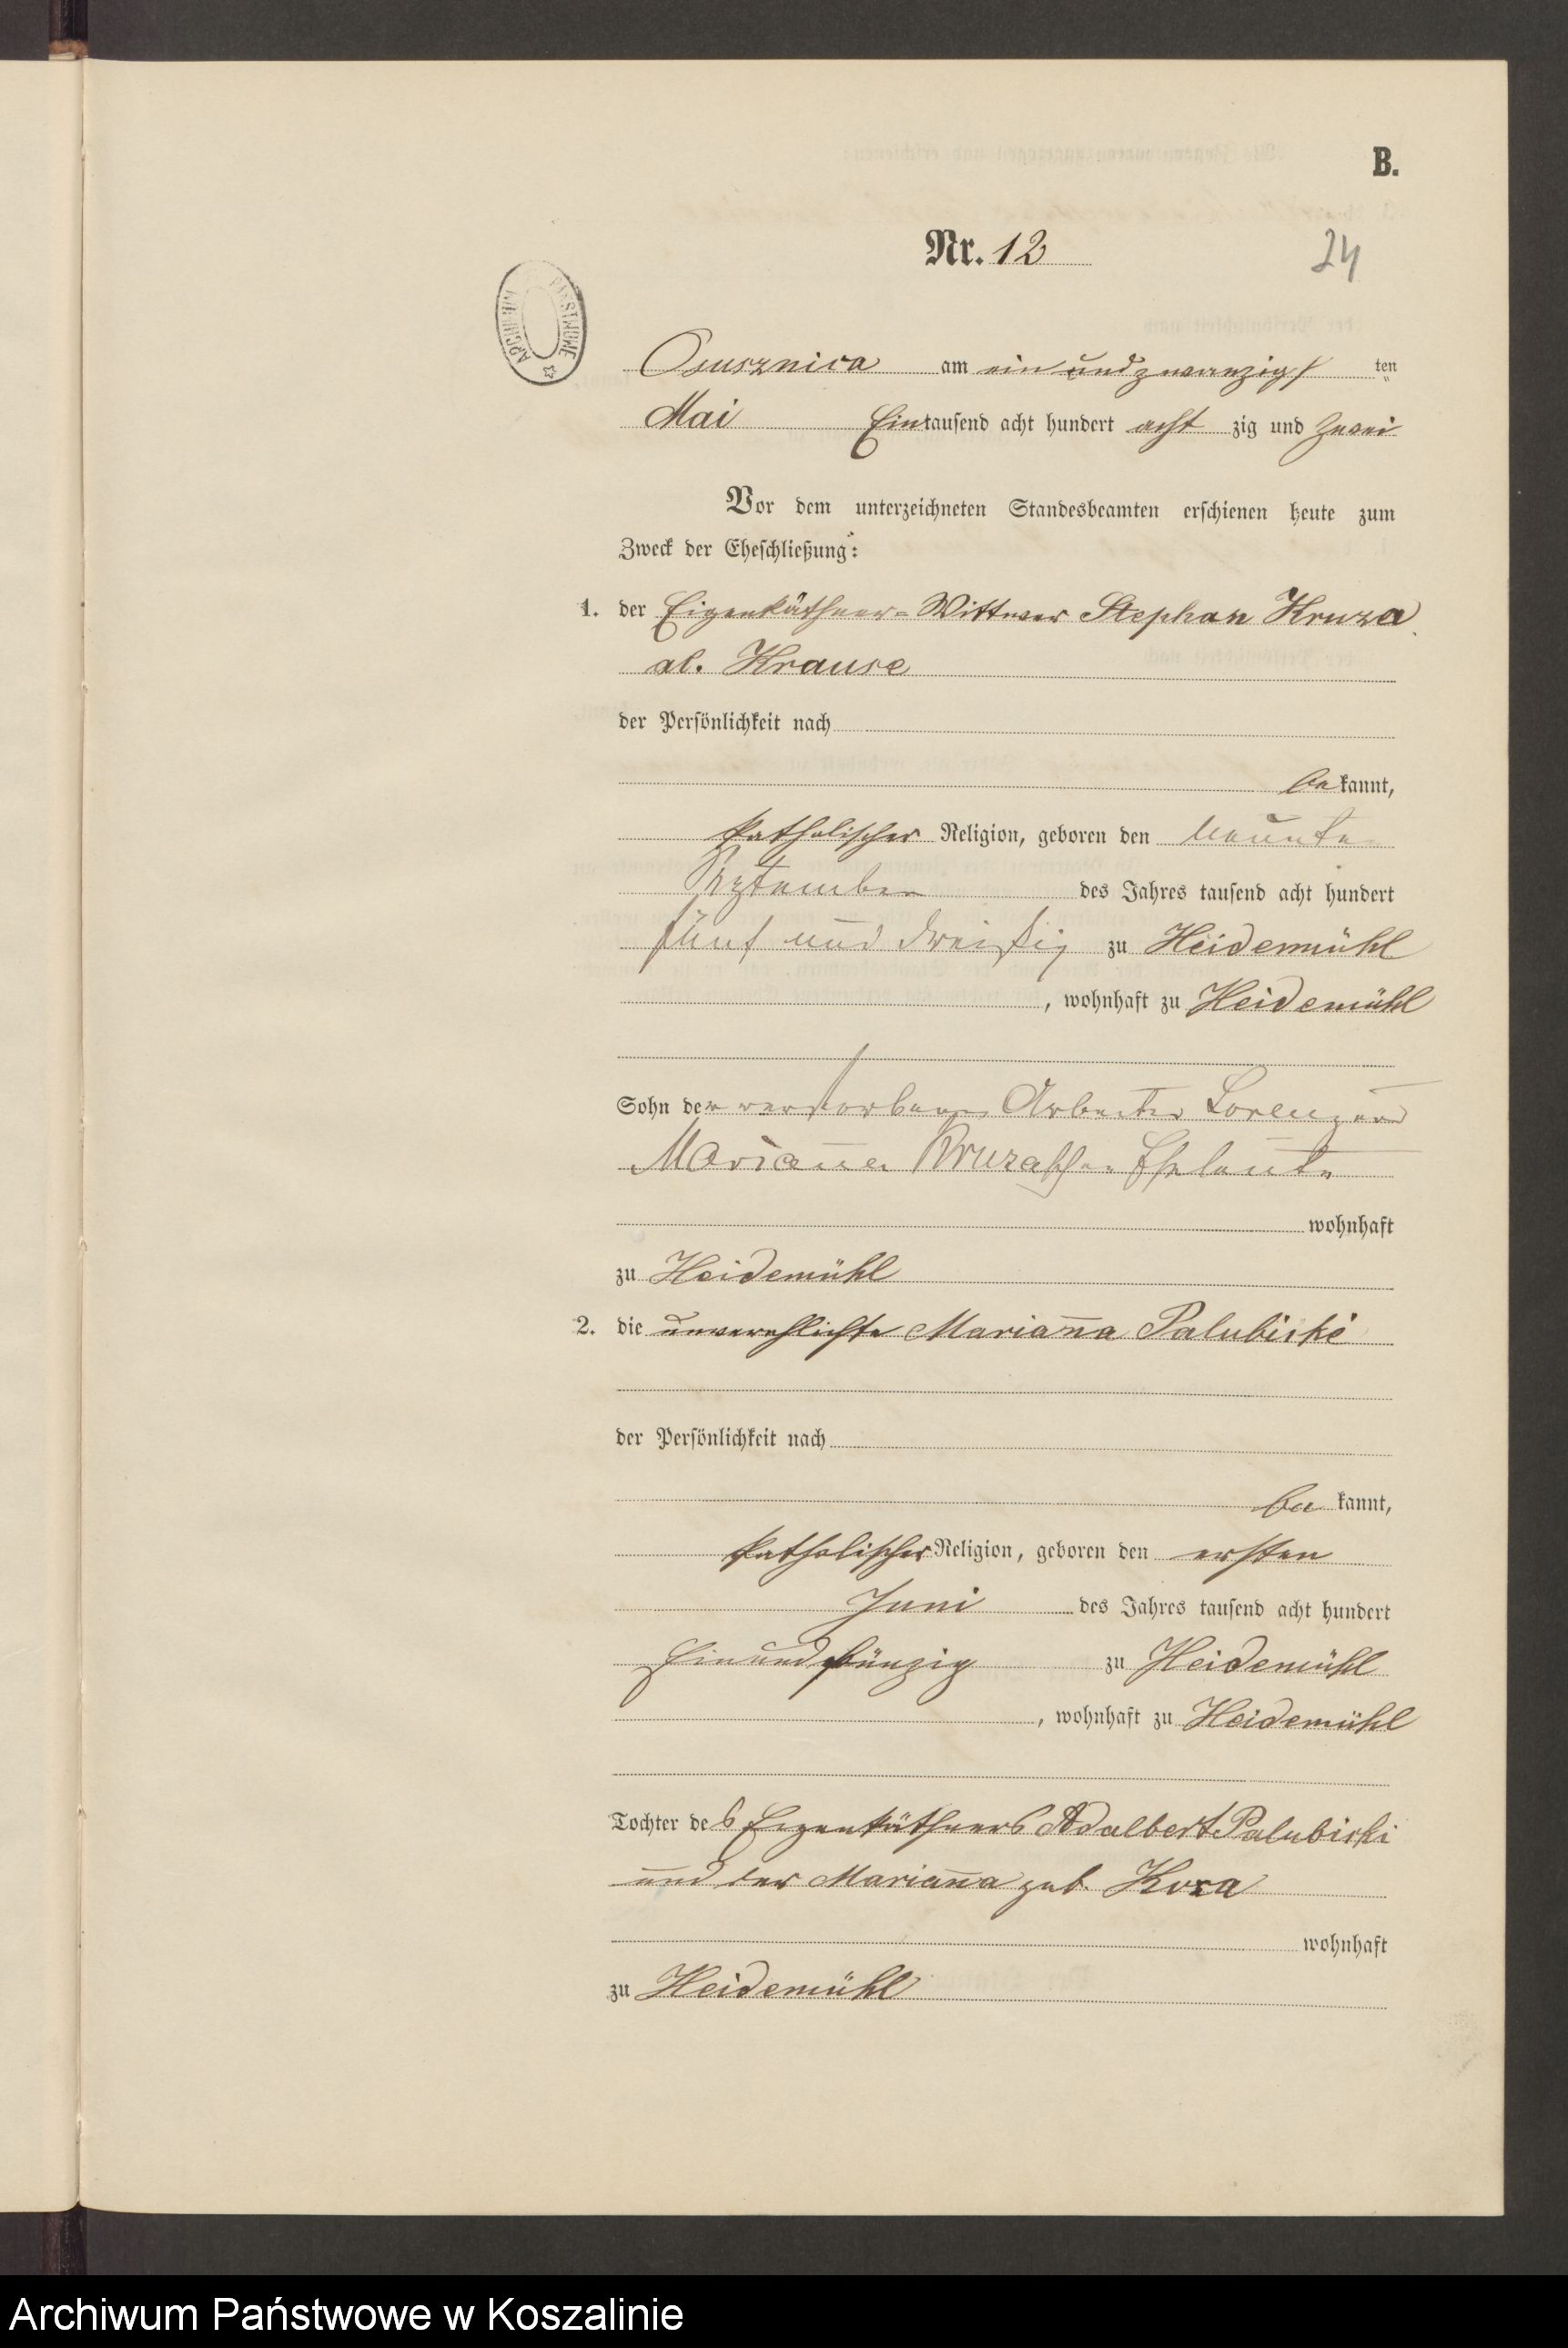 B.
Nr. 12
24
ARCHIWUM PAŃSTWOWE
Osusznica am ein und zwanzigs ten
Mai Eintausend acht hundert acht zig und zwei
Vor dem unterzeichneten Standesbeamten erschienen heute zum
Zweck der Eheschließung:
1. der Eigenkäthner-Wittwer Stephan Kruza
al. Krause
der Persönlichkeit nach
be kannt,
katholischer Religion, geboren den neunten
September des Jahres tausend acht hundert
fünf und dreißig zu Heidemühl
, wohnhaft zu Heidemühl
Sohn der verstorbenen Arbeiter Lorenz und
Marianna Kruzaschen Eheleute
wohnhaft
zu Heidemühl
2. die unverehlichte Marianna Palubicki
der Persönlichkeit nach
be kannt,
katholischer Religion, geboren den ersten
Juni des Jahres tausend acht hundert
Ein und fünzig zu Heidemühl
, wohnhaft zu Heidemühl
Tochter des Eigenkäthners Adalbert Palubicki
und der Marianna geb.
wohnhaft
zu Heidemühl
Archiwum Państwowe w Koszalinie